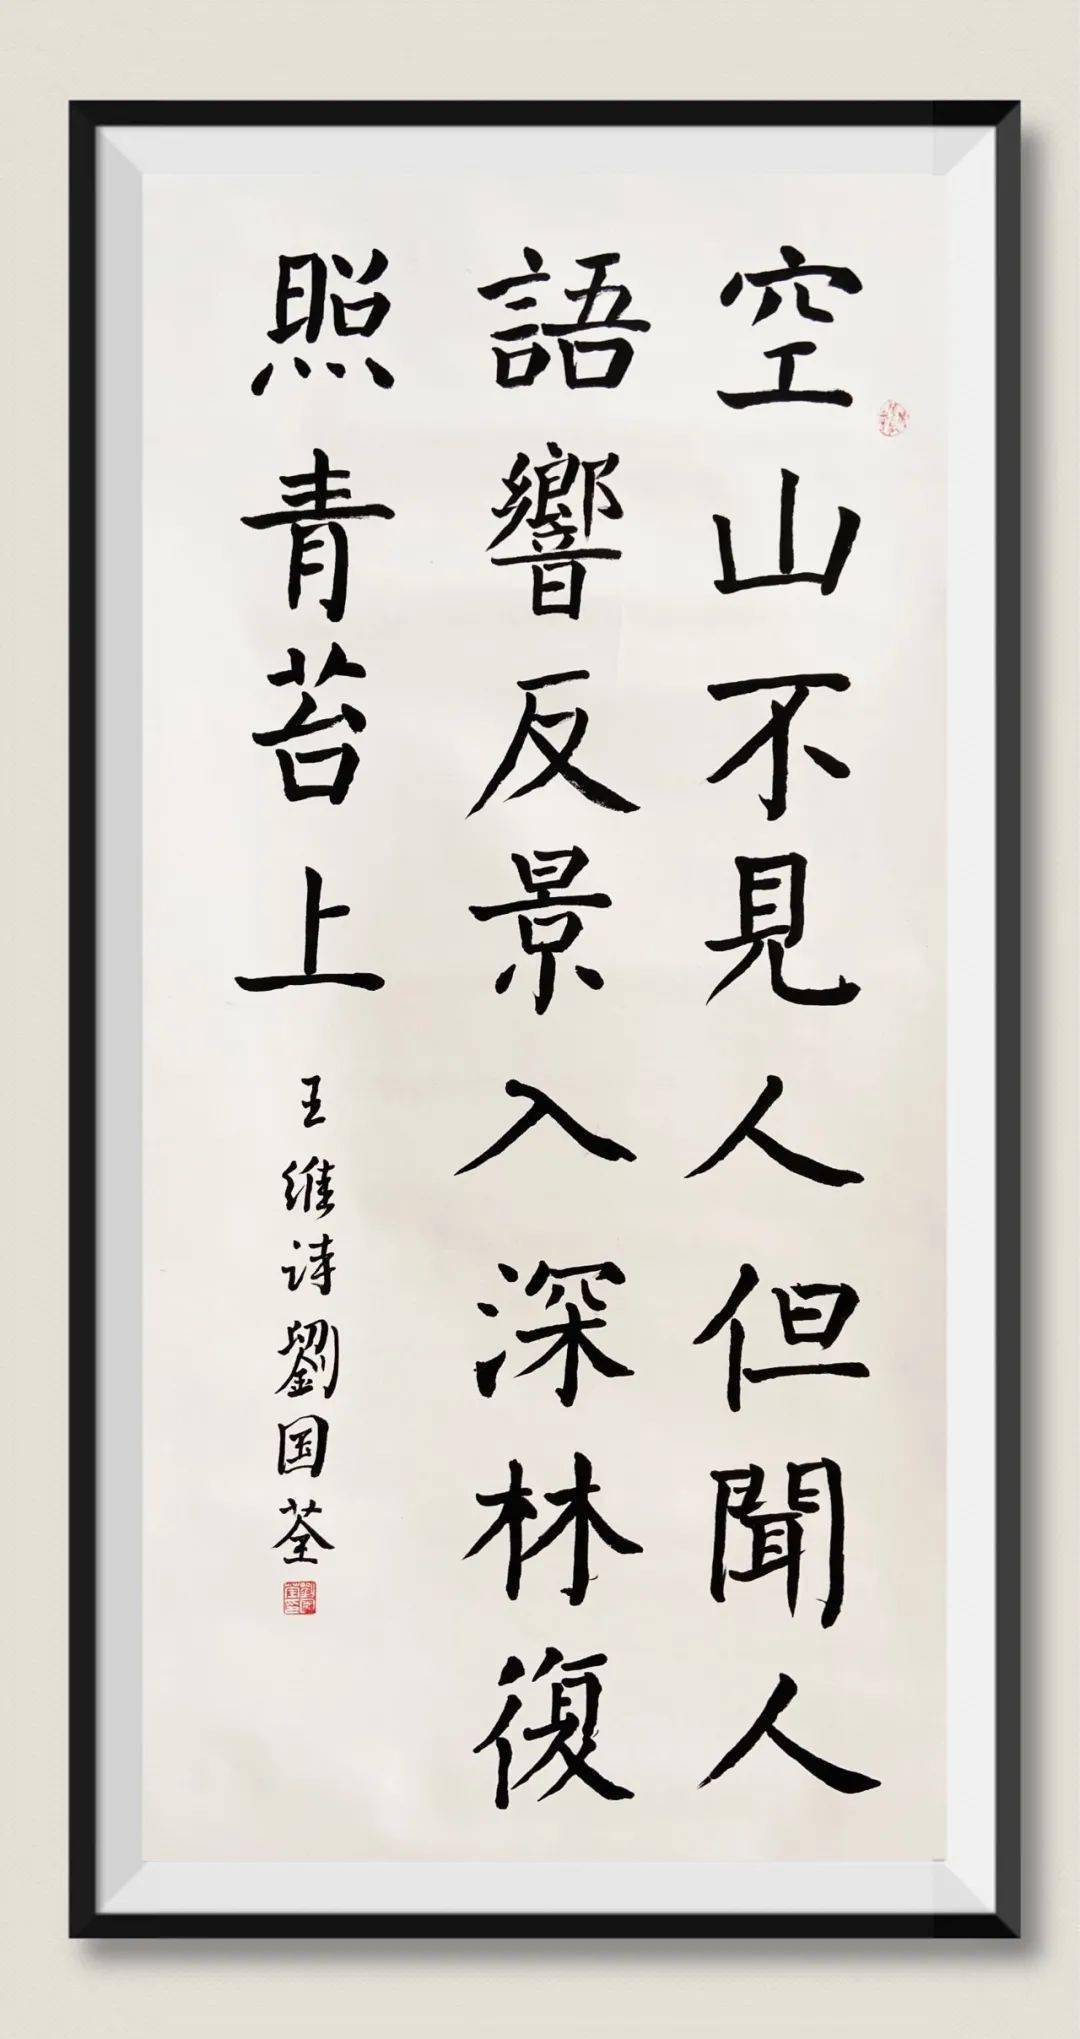 空山不見人但聞人
語響反景入深林復
照青苔上
王維诗劉国荃